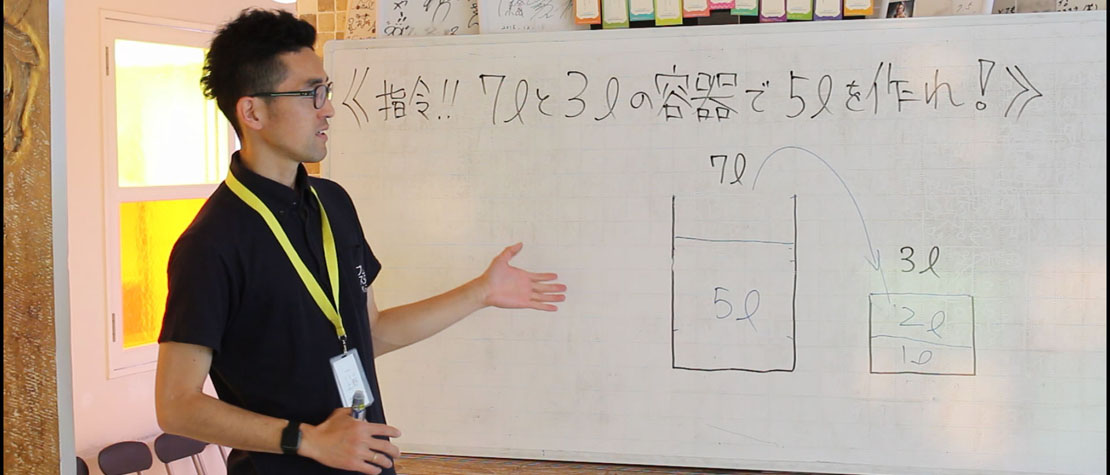 《指令!! 7ℓと3ℓの容器で5ℓを作れ!》
7ℓ
3ℓ
5ℓ
2ℓ
1ℓ